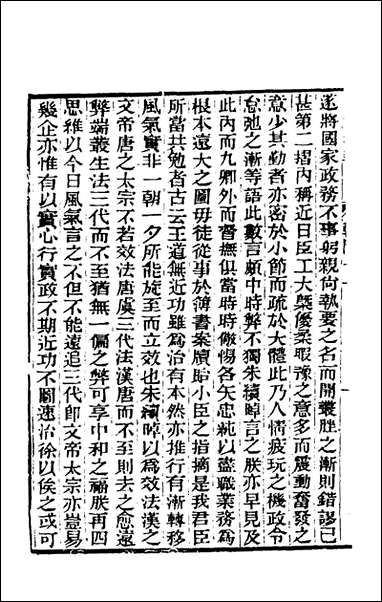 遂將國家政務不事躬親尙執要之名而開叢脞之漸則錯謬已
甚第二摺内稱近日臣工大槩優柔暇豫之意多而震動奮發之
意少其勤者亦密於小節而疏於大體此乃人情疲玩之機政令
怠弛之漸等語此數言頗中時弊不獨朱續晫言之朕亦早見及
此内而九卿外而督撫俱當時時儆惕各矢忠純以盡職業務為
根本遠大之圖毋徒從事於簿書案牘貽小臣之指摘是我君臣
所當共勉者古云王道無近功雖為治有本然亦推行有漸轉移
風氣實非一朝一夕所能旋至而立效也朱續晫以為效法漢之
文帝唐之太宗不若效法唐虞三代法漢唐而不至則去之愈遠
弊端叢生法三代而不至猶無一偏之弊可享中和之福朕再四
思維以今日風氣言之不但不能遠追三代卽文帝太宗亦豈易
幾企亦惟有以實心行實政不期近功不圖速怡徐以俟之或可